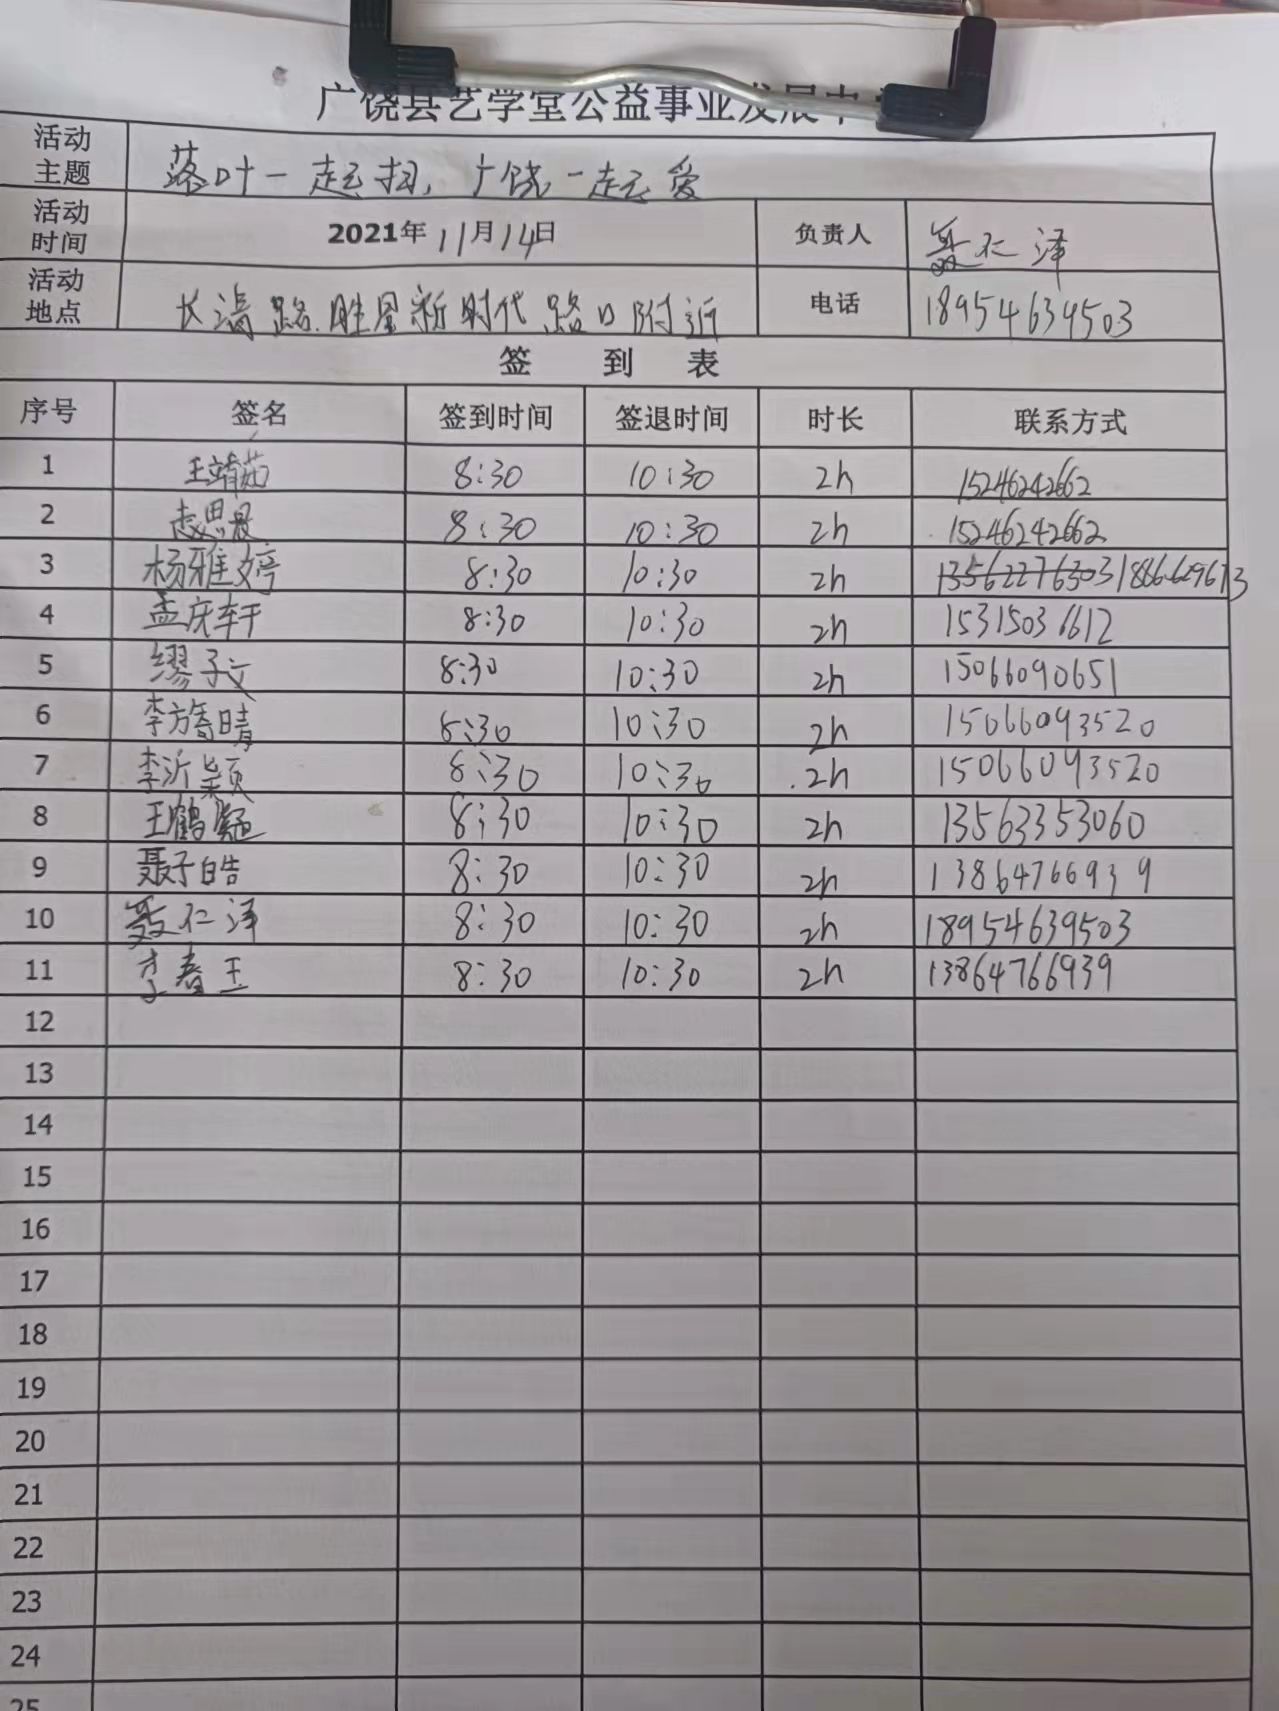 广饶县艺学堂公益事业发展中
活动主题 落叶一起扫,广饶一起爱
活动时间 2021年11月14日 负责人 聂仁泽
活动地点 长清路.胜星新时代路口附近 电话 18954639503
签 到 表
序号 签名 签到时间 签退时间 时长 联系方式
1 王靖茹 8:30 10:30 2h 15246242662
2 赵思晨 8:30 10:30 2h 15246242662
3 杨雅婷 8:30 10:30 2h
4 孟庆轩 8:30 10:30 2h 15315036612
5 缪子文 8:30 10:30 2h 15066090651
6 李方 晴 8:30 10:30 2h 15066093520
7 李沂颖 8:30 10:30 2h 15066093520
8 王鹤 8:30 10:30 2h 13563353060
9 聂子皓 8:30 10:30 2h 13864766939
10 聂仁泽 8:30 10:30 2h 18954639503
11 李春玉 8:30 10:30 2h 13864766939
12
13
14
15
16
17
18
19
20
21
22
23
24
25